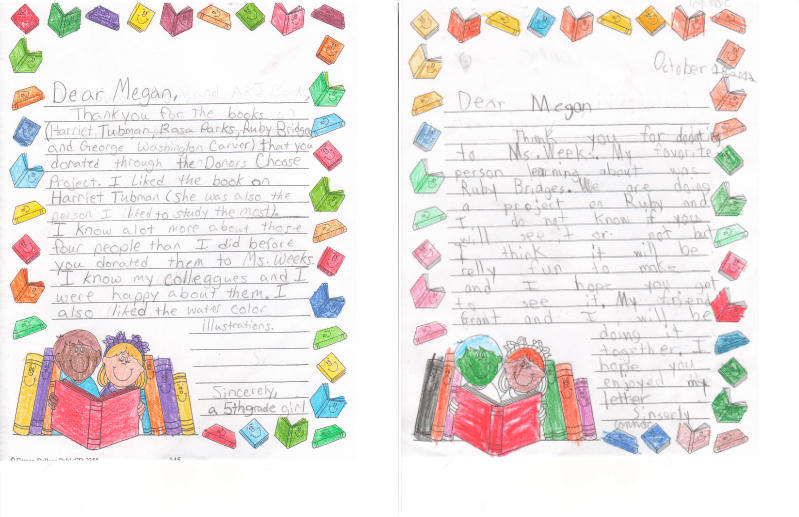 Dear Megan,
Thank you for the books
(Harriet Tubman, Rosa Parks, Ruby Bridges
and George Washington Carver) that you
donated through the Donors Choose
Project. I liked the book on
Harriet Tubman (she was also the
person I liked to study the most).
I know alot more about those
four people than I did before
you donated them to Ms. Weeks.
I know my colleagues and I
were happy about them. I
also liked the water color
illustrations.
Sincerely,
a 5th grade girl
October
Dear Megan
Thank you for donating
to Ms. Weeks. My favorite
person learning about was
Ruby Bridges. We are doing
a project on Ruby and
I do not know if you
will see it or not but
I think it will be
relly fun to make
and I hope you get
to see it. My friend
Grant and I will be
doing it
together. I
hope you
enjoyed my
letter
Sinserly
Connor